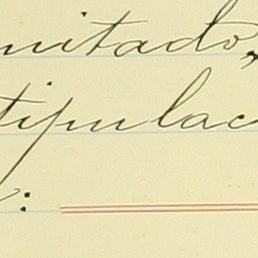 mitado,
tipulac
: